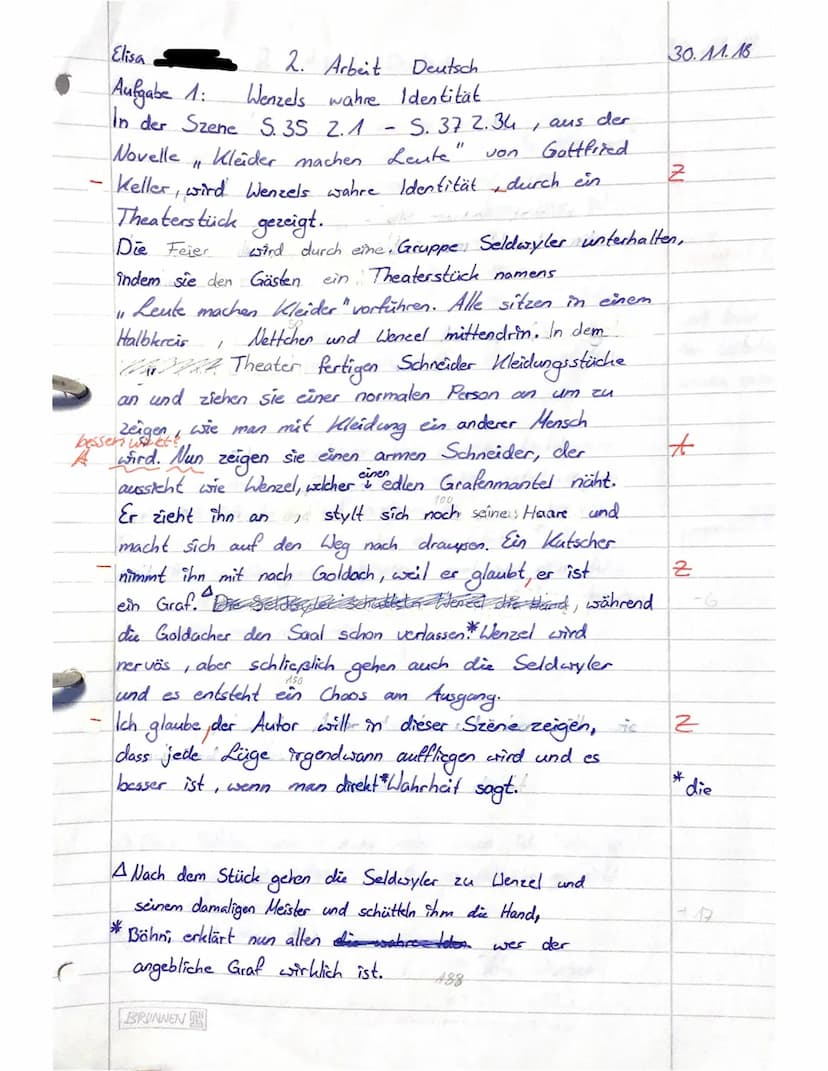 Elisa
2. Arbeit Deutsch
30.11.18
Aufgabe 1: Wenzels wahre Identität
In der Szene S.35 Z.1 - S.37 Z.34, aus der
Novelle „Kleider machen Leute" von Gottfried
- Keller, wird Wenzels wahre Identität, durch ein Z
Theaterstück gezeigt.
Die Feier wird durch eine Gruppe Seldwyler unterhalten,
indem sie den Gästen ein Theaterstück namens
„Leute machen Kleider" vorführen. Alle sitzen in einem
Halbkreis, Nettchen und Wenzel mittendrin. In dem
50
Theater fertigen Schneider Kleidungsstücke
an und ziehen sie einer normalen Person an um zu
zeigen, wie man mit Kleidung ein anderer Mensch
besser: wirkt?
A wird. Nun zeigen sie einen armen Schneider, der
einen
aussieht wie Wenzel, welcher ↓ edlen Grafenmantel näht.
100
Er zieht ihn an, stylt sich noch seine Haare und
macht sich auf den Weg nach draußen. Ein Kutscher
- nimmt ihn mit nach Goldach, weil er glaubt, er ist Z
ein Graf. Δ Die Seldwyler schütteln Wenzel die Hand, während -6
die Goldacher den Saal schon verlassen.* Wenzel wird
nervös, aber schließlich gehen auch die Seldwyler
150
und es entsteht ein Chaos am Ausgang.
- Ich glaube, der Autor will in dieser Szene zeigen, Z
dass jede Lüge irgendwann auffliegen wird und es
besser ist, wenn man direkt * Wahrheit sagt. * die
Δ Nach dem Stück gehen die Seldwyler zu Wenzel und
seinem damaligen Meister und schütteln ihm die Hand,
-17
* Böhni, erklärt nun allen die wahre wer der
angebliche Graf wirklich ist.
188
BRUNNEN